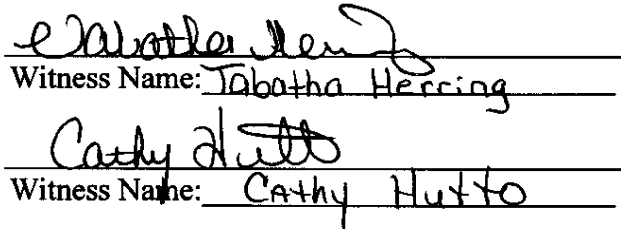 Tabatha Herring
Witness Name: Tabatha Herring
Cathy Hutto
Witness Name: CAthy Hutto